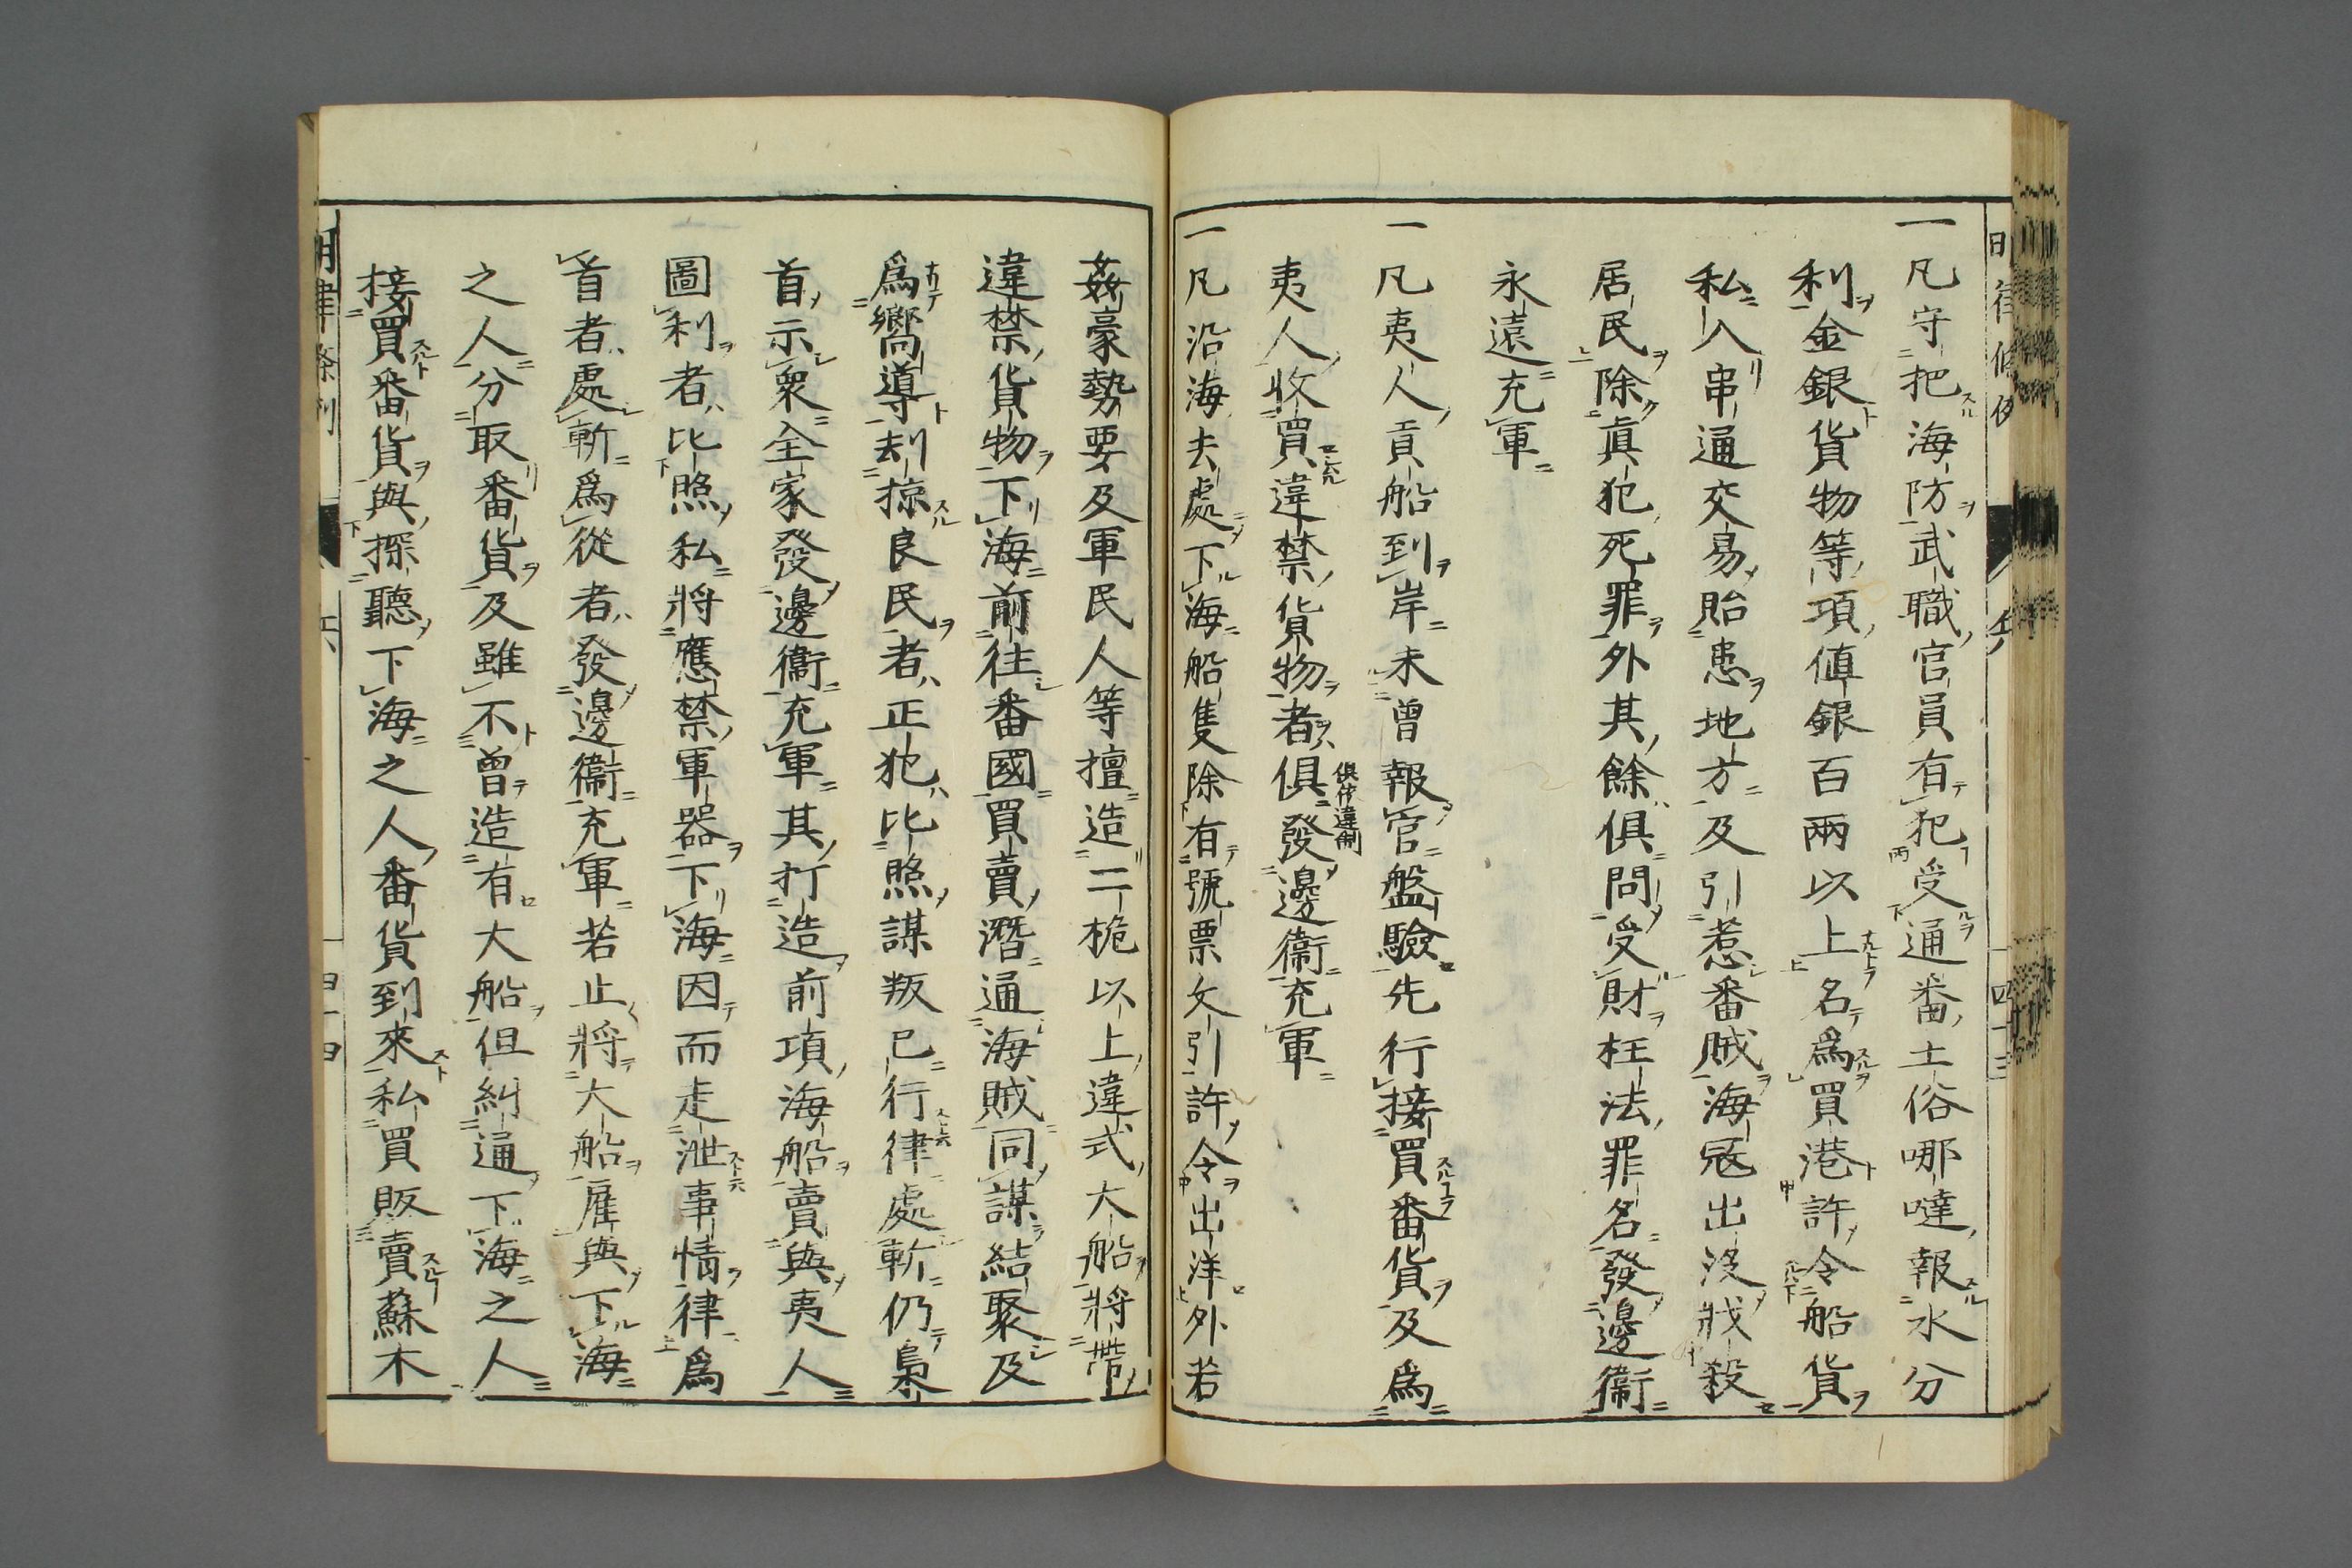 一凡守把海防武職官員有犯受通番土俗哪噠報水分
利金銀貨物等項値銀百兩以上名爲買港許令船貨
私入串通交易貽患地方及引惹番賊海寇出沒戕殺
居民除眞犯死罪外其餘俱問受財枉法罪名發邊衞
永遠充軍
一凡夷人貢船到岸未曾報官盤驗先行接買番貨及爲
夷人收買違禁貨物者俱發邊衞充軍
俱依違制
一凡沿海去處下海船隻除有號票文引許令出洋外若
姦豪勢要及軍民人等擅造二桅以上違式大船將帶
違禁貨物下海前往番國買賣潛通海賊同謀結聚及
爲嚮導刼掠良民者正犯比照謀叛已行律處斬仍梟
首示衆全家發邊衞充軍其打造前項海船賣與夷人
圖利者比照私將應禁軍器下海因而走泄事情律爲
首者處斬爲從者發邊衞充軍若止將大船雇與下海
之人分取番貨及雖不曾造有大船但糾通下海之人
接買番貨與探聽下海之人番貨到來私買販賣蘇木
明律條例